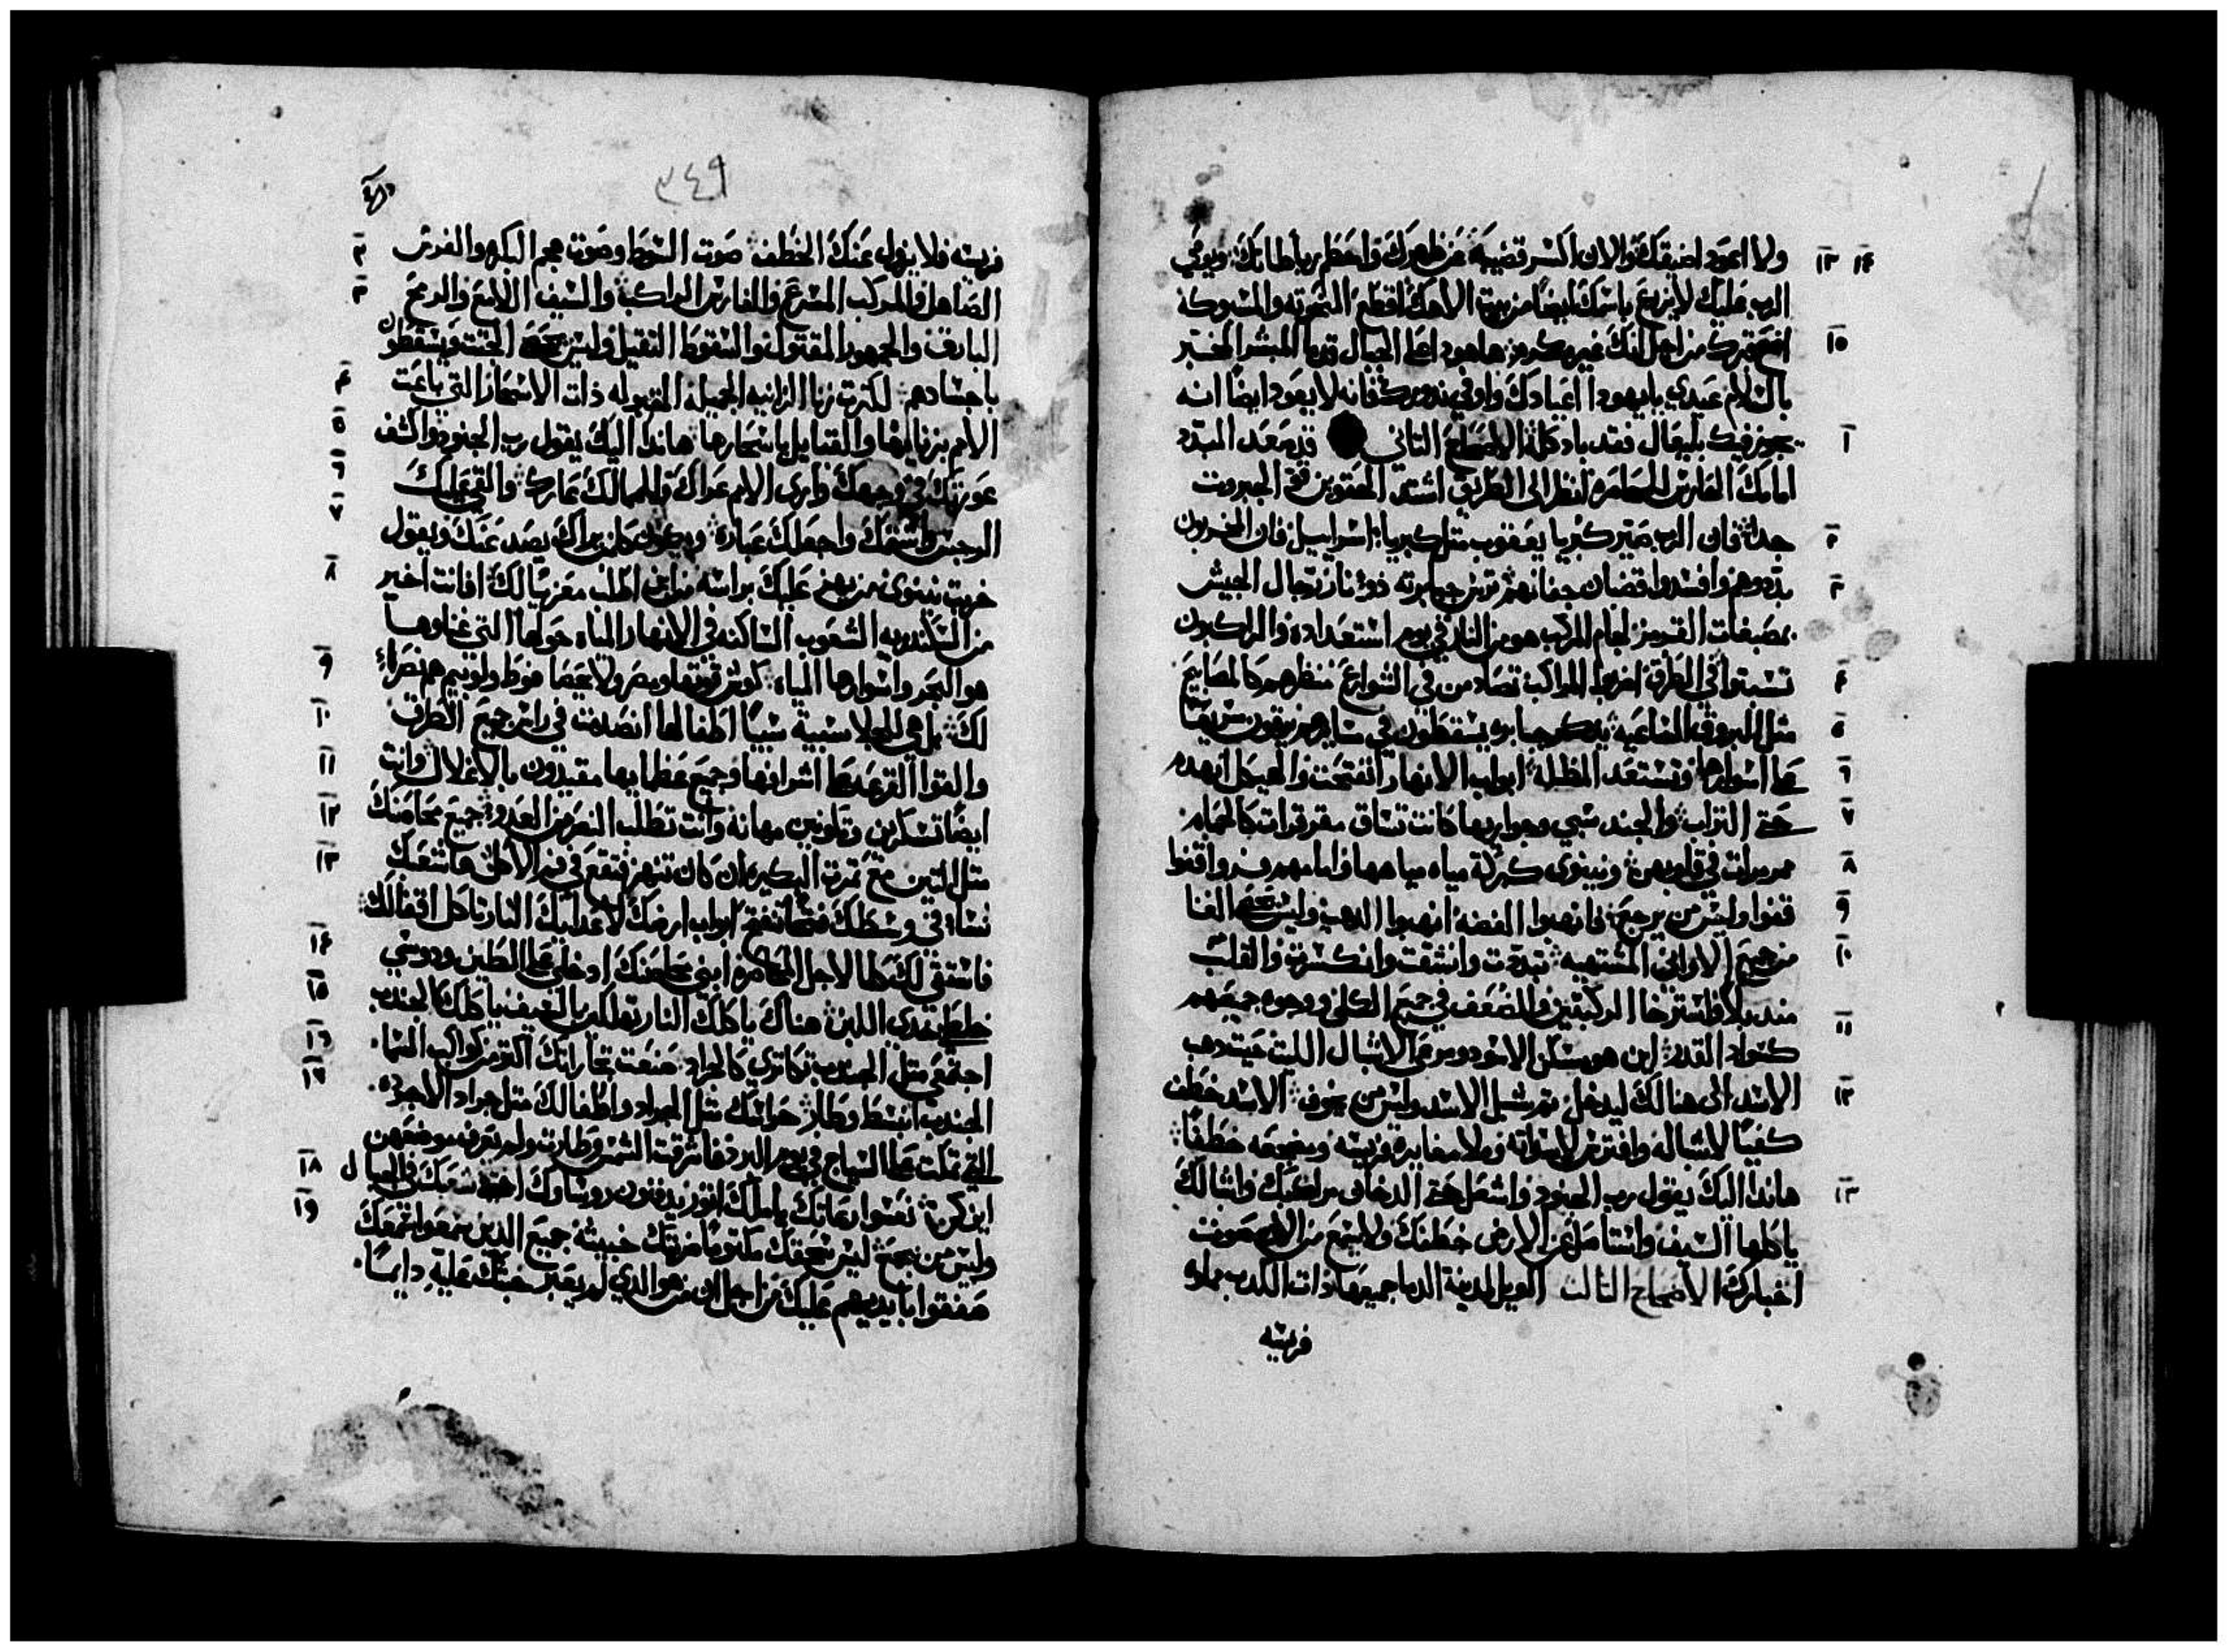 ولا اعود اضيقك والان اكسر قضيبه عن ظهرك واحطم رباطاتك ويوصي
١٣ ١٤
الرب عليك لا يزرع باسمك ايضا من بيت الاهك اقطع المنحوته والمسبوكه
اضع قبرك من اجل انك غير مكرم هاهوذا على الجبال قدما المبشر المخبر
١٥
بالسلام عيدي يا يهودا اعيادك واوفي نذورك فانه لا يعود ايضا انه
يجوز فيك بليعال فقد باد كله الاصحاح التاني قد صعد المبدد
١
امامك الحارس المحاصره انظر الى الطريق اشدد الحقوين قو الجبروت
جدا فان الرب صير كبريا يعقوب مثل كبريا اسراييل فان المخربون
٢
بددوهم وافسدوا قضبان جفانهم ترس جبابرته ذو نار رجال الجيش
٣
بمصبغات القرمز لجام المركب هو من النار في يوم استعداده والراكبون
تسبتوا في الطرق اضربوا المراكب تصادمن في الشوارع منظرهم كالمصابيح
٤
مثل البروق الساعيه يذكر جبابره يسقطون في مسايرهم يرتقون سريعا
٥
على اسوارها وتستعد المظله ابواب الانهار انفتحت والهيكل انهدم
٦
حتى التراب والجند سبي وجواريها كانت تساق مقرقرات كالحمام
٧
ممرمرات في قلوبهن ونينوى كبركة مياه مياهها واما هم فروا قفوا
٨
قفوا وليس من يرجع فانهبوا الفضه انهبوا الدهب وليس نهاية الغنا
٩
من جميع الاواني المشتهيه تبددت وانشقت وانكسرت والقلب
١٠
مندبلا واسترخا الركبتين والضعف في جميع الكلى ووجوه جميعهم
كسواد القدر اين هو مسكن الاسود ومرعى الاشبال الليث حيث دهب
١١
الاسد الى هنالك ليدخل ثم شبل الاسد وليس من يخوف الاسد خطف
١٢
كفيا لاشباله وافترس للبواته وملا مغايره فريسه ومضجعه خطفا
هاندا اليك يقول رب الجنود واشعل حتى الدخان مراكبك واشبالك
١٣
ياكلها السيف واستاصل من الارض خطفك ولا يسمع من الان صوت
اخبارك الاصحاح التالت الويل لمدينة الدما جميعها ذات الكدب مملوه
فريسه
٣٤٩
فريسه فلا يزول عنك الخطف صوت السوط وصوت عجم البكره والفرس
٢
الصاهل والمركب المسرع والفارس الراكب والسيف اللامع والرمح
٣
البارق والجمهور المقتول والسقوط الثقيل وليس نهاية الجثث ويسقطون
باجسادهم لكثرت زنا الزانيه الجميله المقبوله ذات الاسحار التي باعت
٤
الامم بزناها والقبايل باسحارها هاندا اليك يقول رب الجنود واكشف
٥
عورتك في وجهك واري الامم عراك وللممالك عارك والقي عليك
٦
الرجس واشتمك واجعلك عباره ويكون كل من يراك يصد عنك ويقول
٧
خربت نينوى من يهز عليك براسه من اين اطلب معزيا لك افانت اخير
٨
من اسكندريه الشعوب الساكنه في الانهار المياه حولها التي غناوها
هو البحر واسوارها المياه كوش قوتها ومصر ولا يحصا فوط ولوبيم هم نصراء
٩
لك بل هي للجلا سبية سبيا اطفالها انصدمت في راس جميع الطرق
١٠
والقوا القرعه على اشرافها وجميع عظمايها مقيدون بالاغلال وانت
١١
ايضا تسكرين وتكونين مهانه وانت تطلب النصر من العدو جميع محاصنك
١٢
مثل التين مع تمرت البكيره ان كان تنهز فتقع في فم الاكل ها شعبك
١٣
نساء في وسطك فتحا تفتح ابواب ارضك لاعدايك النار تاكل اقفالك
فاستقي لك ما لاجل المحاصره ابني محاصنك ادخلي على الطين ودوسي
١٤
خلطا بيدي اللبن هناك ياكلك النار تهلكين بالسيف ياكلك كالجندب
١٥
اجتمعي مثل الجندب تكاتري كالجراد صنعت تجاراتك اكتر من كواكب السماء
١٦
الجندب انبسط وطار حراسك مثل الجراد واطفالك مثل جراد الاجرده
١٧
التي تثبت على السياج في يوم البرد فاشرقت الشمس وطارت ولم يعرف موضعهن
اين كن نعسوا رعاتك يا ملك اتور يدفنون روساوك اختبا شعبك في الجبال
١٨
وليس من يجمع ليس سحقك مكتوما ضربتك خبيثه جميع الدين سمعوا سمعك
١٩
صفقوا بايديهم عليك من اجل ان من هو الذي لم يعبر خبثك عليه دايما